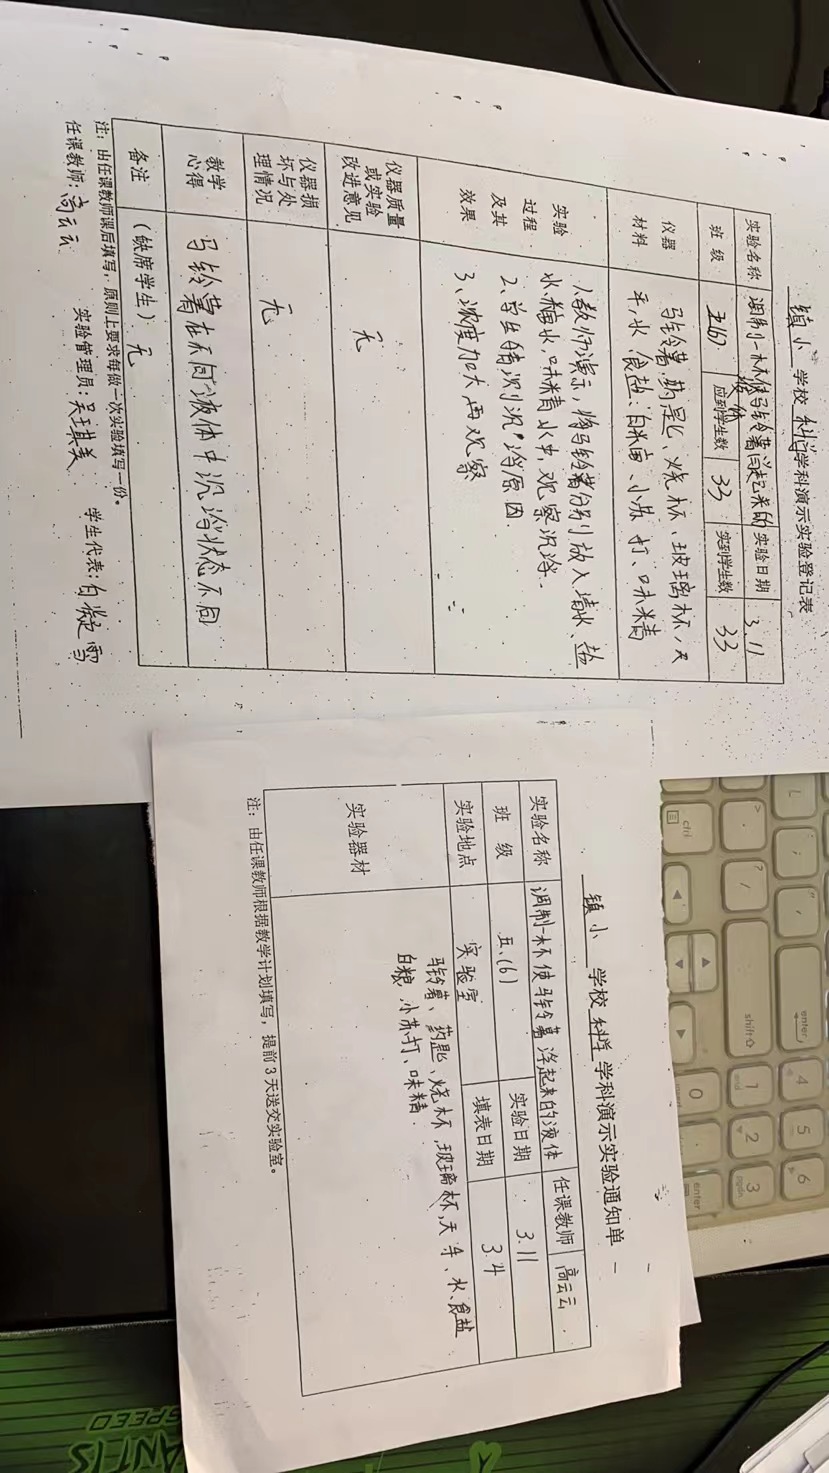 镇小 学校 科学 学科演示实验登记表
实验名称 调制一杯使马铃薯浮起来的液体 实验日期 3.11
班 级 五(6) 应到学生数 33 实到学生数 33
仪器材料 马铃薯、药匙、烧杯、玻璃杯、天
平、水、食盐、白糖、小苏打、味精
实验过程及其效果 1、教师演示,将马铃薯分别放入清水、盐
水、糖水、味精水中,观察沉浮.
2、学生猜测沉浮原因
3、浓度加大再观察
仪器质量或实验改进意见 无
仪器损坏与处理情况 无
教学心得 马铃薯在不同液体中沉浮状态不同
备注 (缺席学生) 无
注:由任课教师课后填写,原则上要求每做一次实验填写一份。
任课教师:高云云 实验管理员:吴 美 学生代表:白凝雪
镇小 学校 科学 学科演示实验通知单
实验名称 调制一杯使马铃薯浮起来的液体 任课教师 高云云
班 级 五、(6) 实验日期 3.11
实验地点 实验室 填表日期 3.4
实验器材 马铃薯、药匙、烧杯、玻璃杯、天平、水、食盐
白糖、小苏打、味精.
注:由任课教师根据教学计划填写,提前3天送交实验室。
ctrl
shift
enter
0
1
2
3
4
5
6
enter
ANTIS
SPEED